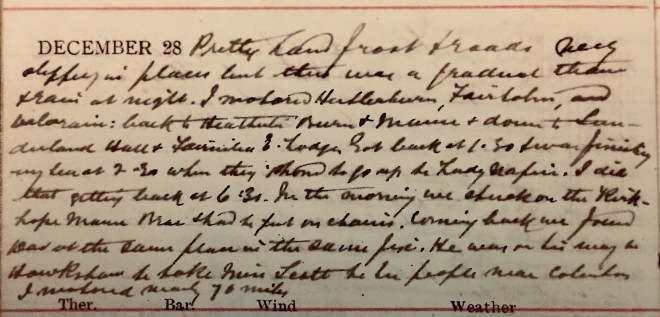 DECEMBER 28 Pretty hard frost & roads very
slippery in places but there was a gradual thaw
& rain at night. I motored Hutlerburn, Fairlohn, and
back to Burn & Manse & down to Sun-
derland Hall & E. Lodge. Got back at 1.30 & was finishing
my tea at 2.30 when they 'phoned to go up to Lady Napier. I did
that getting back at 6.30. In the morning we stuck on the Kirk-
hope Manse Brae & had to put on chains. Coming back we found
at the same place in the same fix. He was on his way to
Hawkshaw to take Miss Scott to her people near
I motored nearly 70 miles
Ther. Bar. Wind Weather